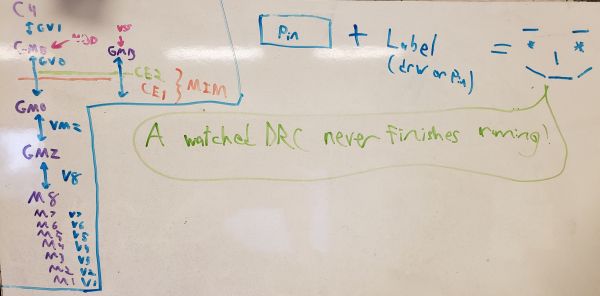 C4
GV1
GMB VDD
GV0
VSS
GMB
CE2
CE1 } MIM
GM0
VMZ
GMZ
V8
M8
M7 V7
M6 V6
M5 V5
M4 V4
M3 V3
M2 V2
M1 V1
Pin + Label =
(drw or pin)
A watched DRC never finishes running!